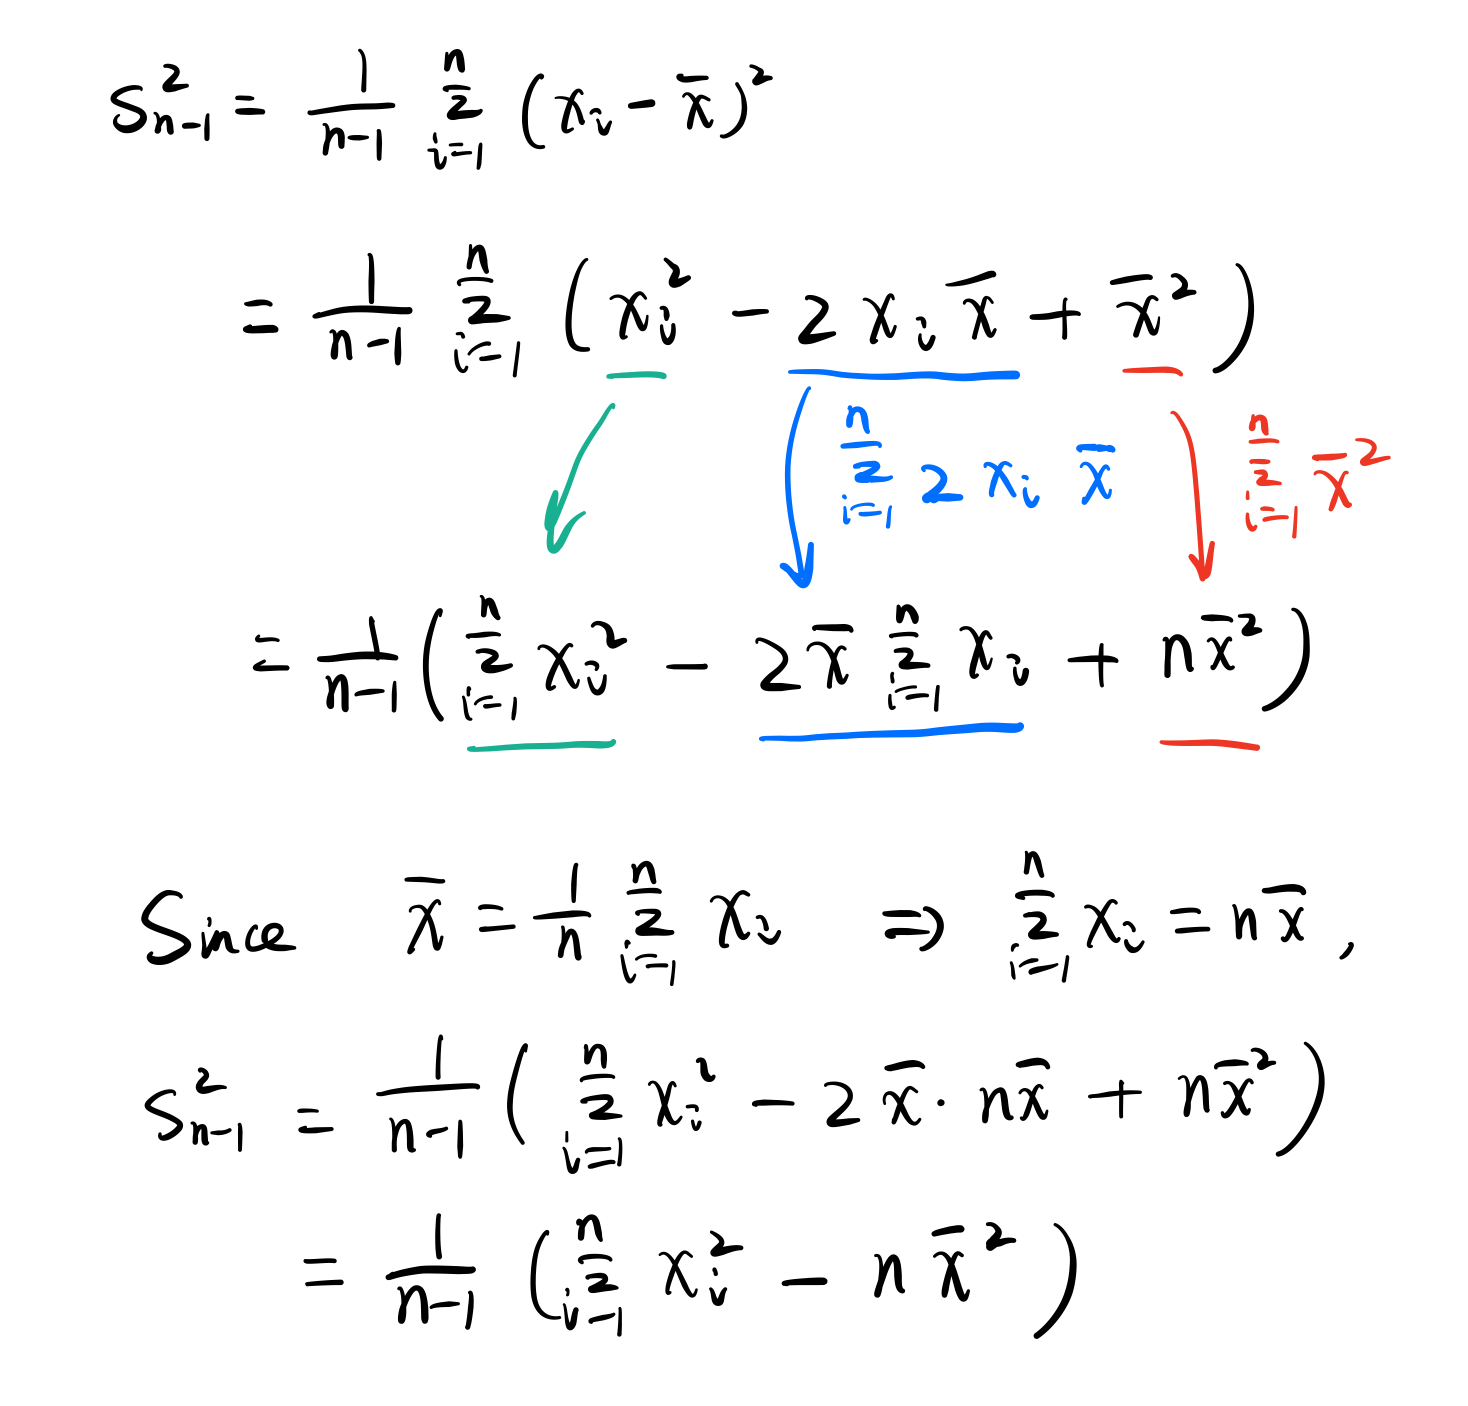 S²ₙ₋₁ = 1/(n-1) ∑ᵢ₌₁ⁿ (xᵢ - x̄)²
= 1/(n-1) ∑ᵢ₌₁ⁿ (xᵢ² - 2 xᵢ x̄ + x̄²)
∑ᵢ₌₁ⁿ 2 xᵢ x̄
∑ᵢ₌₁ⁿ x̄²
= 1/(n-1) (∑ᵢ₌₁ⁿ xᵢ² - 2x̄ ∑ᵢ₌₁ⁿ xᵢ + nx̄²)
Since x̄ = 1/n ∑ᵢ₌₁ⁿ xᵢ ⇒ ∑ᵢ₌₁ⁿ xᵢ = nx̄,
S²ₙ₋₁ = 1/(n-1) (∑ᵢ₌₁ⁿ xᵢ² - 2x̄ · nx̄ + nx̄²)
= 1/(n-1) (∑ᵢ₌₁ⁿ xᵢ² - nx̄²)